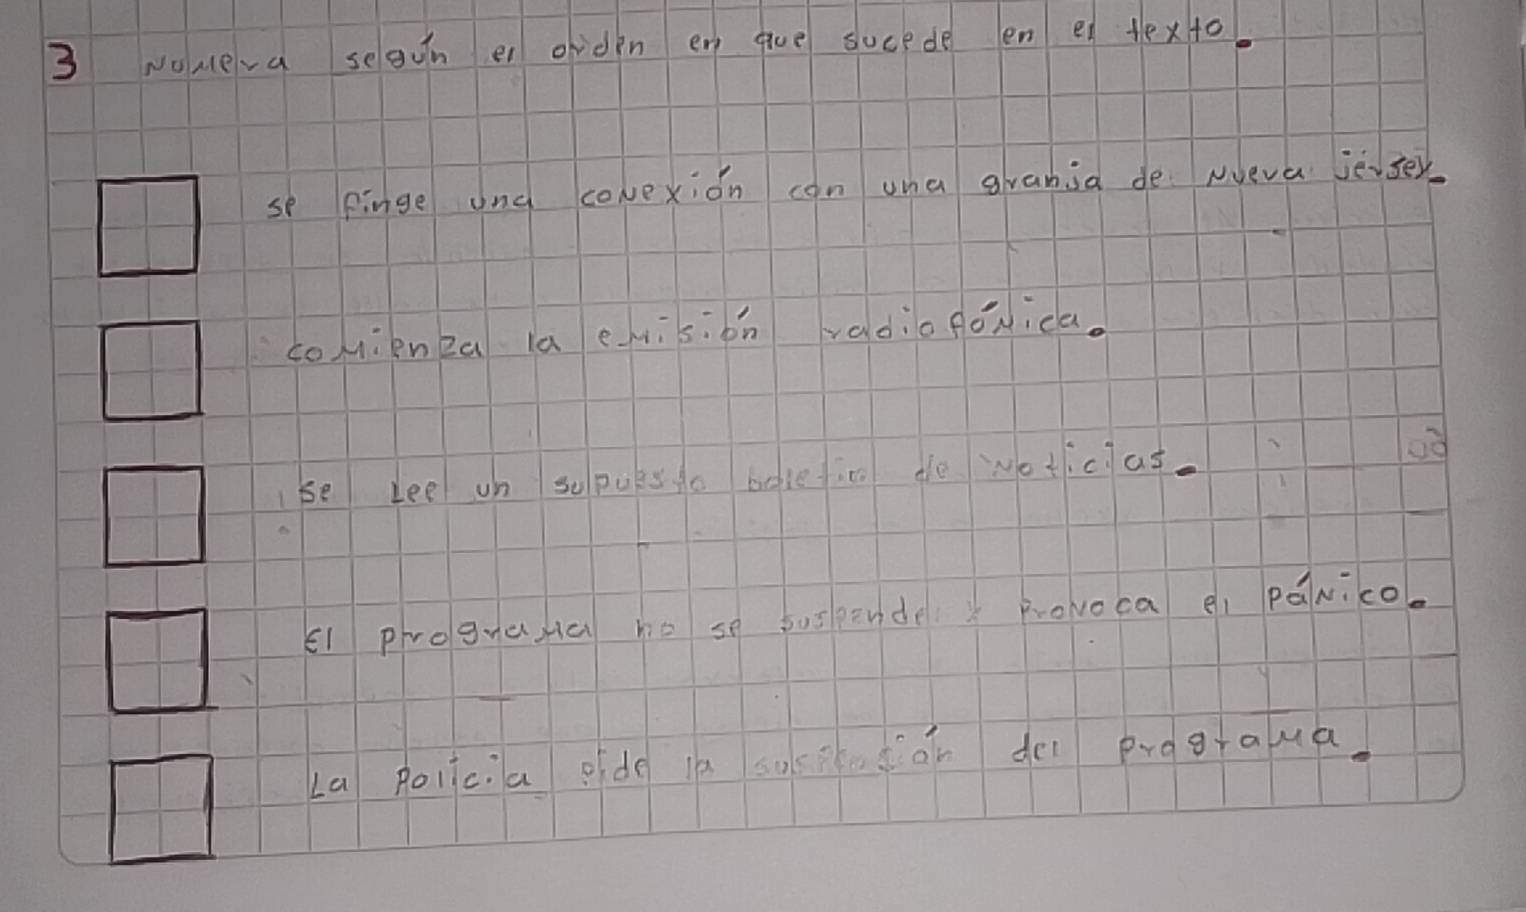 3 Numera según el orden en que sucede en el texto.
se finge una conexión con una granja de Nueva Jersey.
comienza la emisión radiofónica.
se Lee un supuesto boletin de noticias.
El programa no se suspende y provoca el pánico.
La policia pide la suspensión del programa.